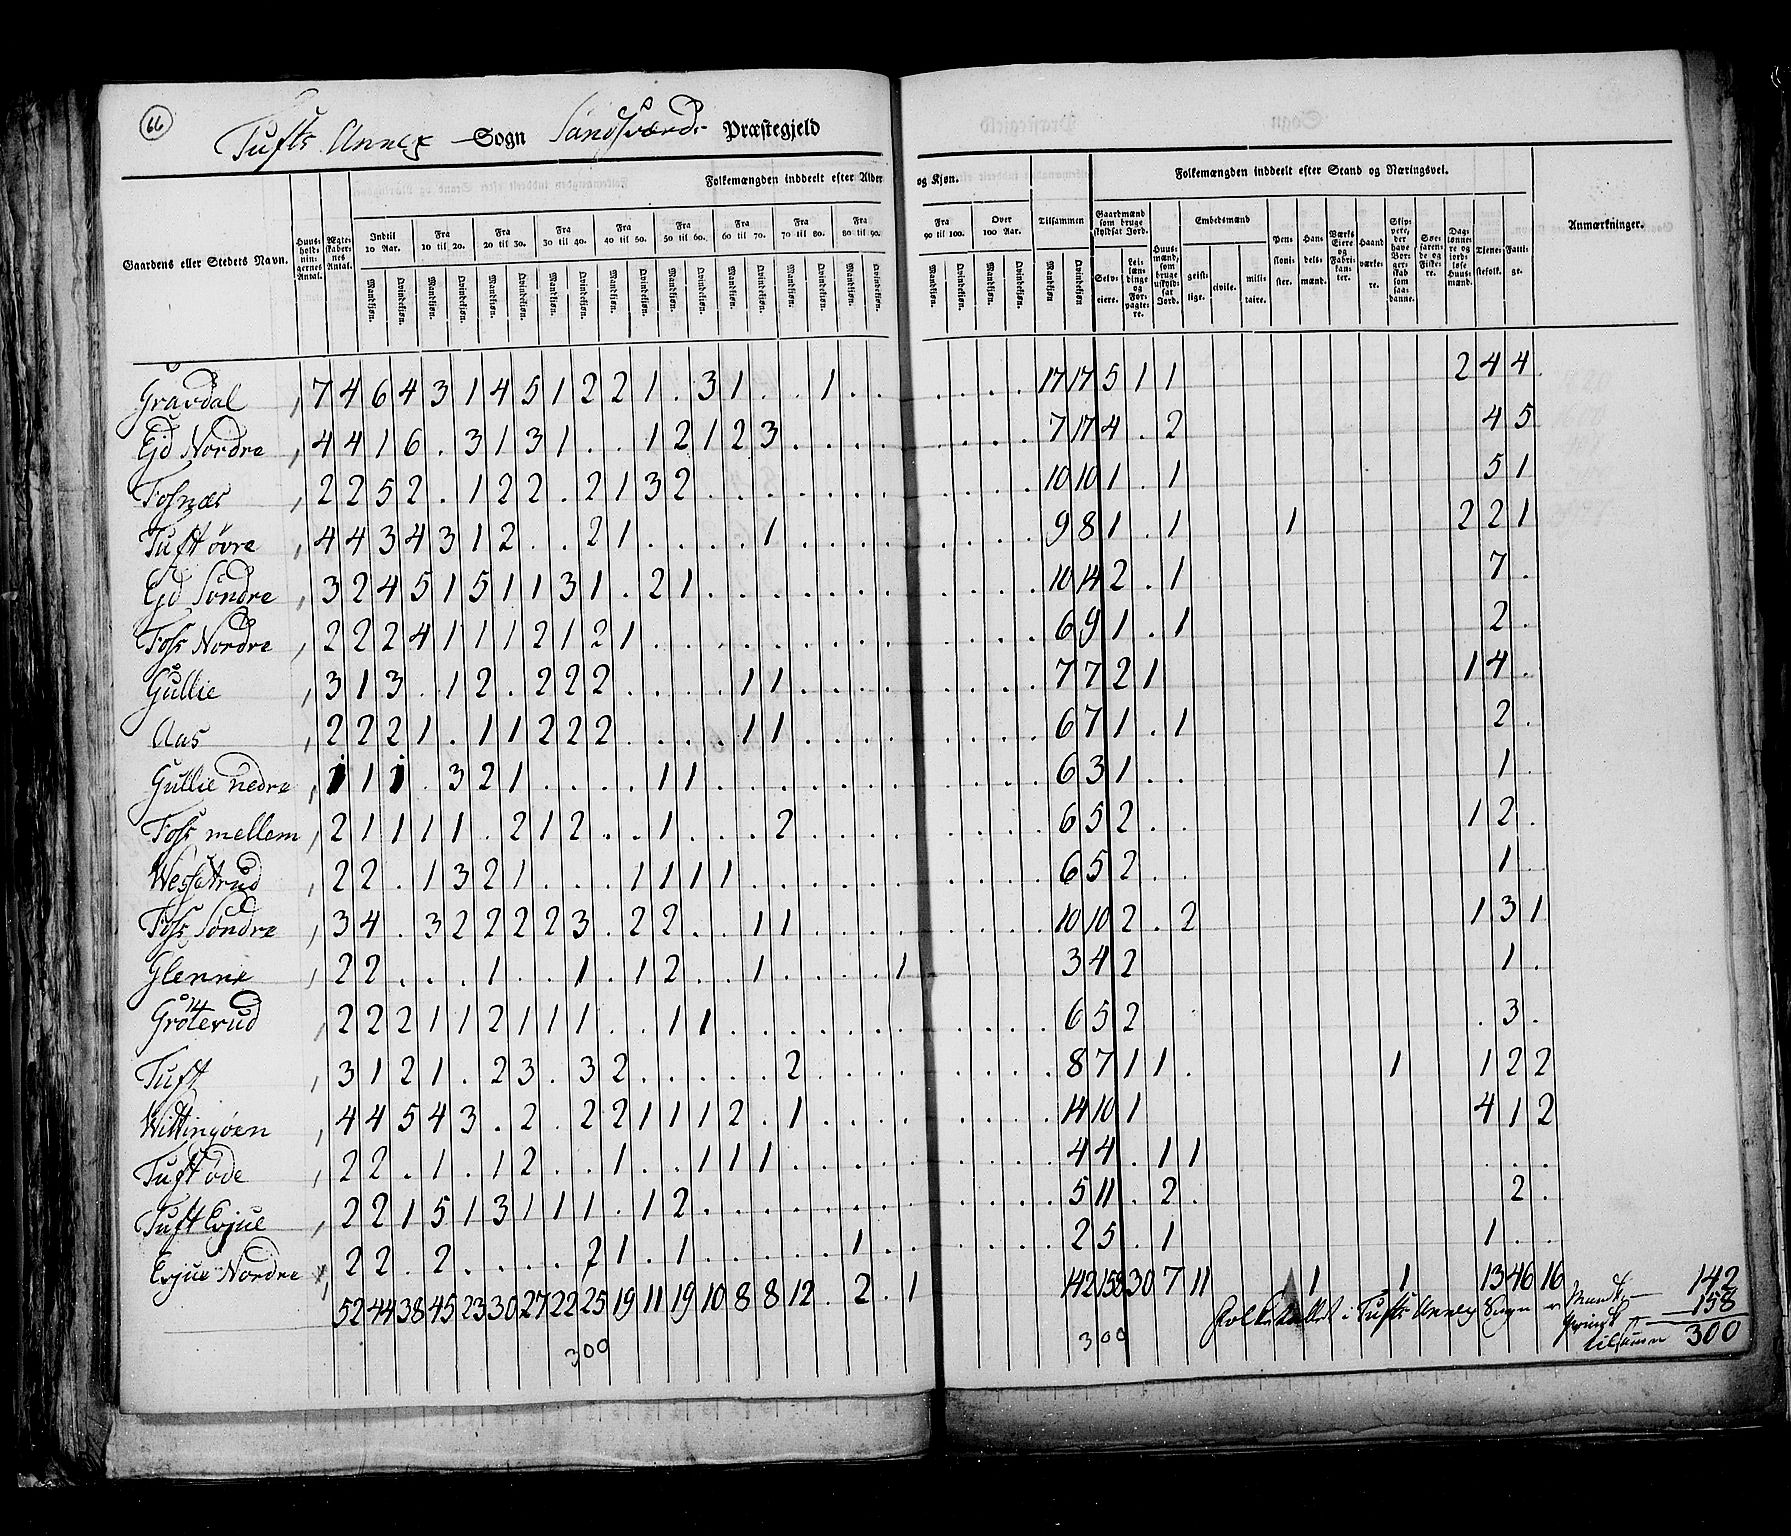 66
Tufts Annex Sogn Sandsværds Præstegjeld
Folkemængden inddeelt efter Alder og Kjøn. Folkemængden inddeelt efter Stand og Næringsvei.
Gaardens eller Stedets Navn. Huusholdningernes Antal. Ægteskabernes Antal. Indtil 10 Aar. Fra 10 til 20. Fra 20 til 30. Fra 30 til 40. Fra 40 til 50. Fra 50 til 60. Fra 60 til 70. Fra 70 til 80. Fra 80 til 90. Fra 90 til 100. Over 100 Aar. Tilsammen Gaardmænd som bruge skyldsat Jord. Huusmænd, som bruge uskyldsat Jord. Embedsmænd Pensionister. Handelsmænd. Værks Eiere og Fabrikanter. Haandværkere. Skippere, der have Borgerskab som saadanne. Søefarende og Fiskere. Daglønnere og jordløse Huusmænd. Tjenestefolk. Fattige. Anmærkninger.
Mandkjøn. Qvindekjøn. Mandkjøn. Qvindekjøn. Mandkjøn. Qvindekjøn. Mandkjøn. Qvindekjøn. Mandkjøn. Qvindekjøn. Mandkjøn. Qvindekjøn. Mandkjøn. Qvindekjøn. Mandkjøn. Qvindekjøn. Mandkjøn. Qvindekjøn. Mandkjøn. Qvindekjøn. Mandkjøn. Qvindekjøn. Mandkjøn Qvindekjøn Selveiere. Leilændinge og Forpagtere. geistlige. civile. militaire.
Gravdal 7 4 6 4 3 1 4 5 1 2 2 1 . 3 1 . . 1 . . . . . . 17 17 5 1 1 2 4 4
Ejd Nordre 4 4 1 6 . 3 1 3 1 . . 1 2 1 2 3 . . . . . . . . 7 17 4 . 2 4 5
Fosnæs 2 2 5 2 . 1 2 2 . 2 1 3 2 . . . . . . . . . . . 10 10 1 . 1 5 1
Tuft øvre 4 4 3 4 3 1 2 . . 2 1 . . . . 1 . . . . . . . . 9 8 1 . 1 1 2 2 1
Ejd Søndre 3 2 4 5 1 5 1 1 3 1 . 2 1 . . . . . . . . . . . 10 14 2 . 1 7 .
Foss Nordre 2 2 2 4 1 1 1 2 1 2 1 . . . . . . . . . . . . . 6 9 1 . 1 2 .
Gullie 3 1 3 . 1 2 . 2 2 2 . . . . 1 1 . . . . . . . . 7 7 2 1 1 4 .
Aas 2 2 2 1 . 1 1 2 2 2 . . . . 1 1 . . . . . . . . 6 7 1 . 1 2 .
Gullie nedre 1 1 1 . 3 2 1 . . . . 1 1 . . . . . . . . . . . 6 3 1 . . 1 .
Foss mellem 2 1 1 1 1 . 2 1 2 . . 1 . . . 2 . . . . . . . . 6 5 2 . . 1 2 .
Wesletrud 2 2 . 1 3 2 1 . . . 1 1 1 1 . . . . . . . . . . 6 5 2 . . 1 .
Foss Søndre 3 4 . 3 2 2 2 2 3 . 2 2 . . 1 1 . . . . . . . . 10 10 2 . 2 1 3 1
Glenne 2 2 . . . 1 . . 1 . 1 2 . . 1 . . . . 1 . . . . 3 4 2 1 .
Grøterud 2 2 2 1 1 2 1 1 1 . . 1 1 . . . . . . . . . . . 6 5 2 . 3 .
Tuft 3 1 2 1 . 2 3 . 3 2 . . . . . 2 . . . . . . . . 8 7 1 1 . 1 1 2 2
Wittingøen 4 4 5 4 3 . 2 . 2 2 1 1 1 2 . 1 . . . . . . . . 14 10 1 4 1 2
Tuft øde 2 2 . 1 . 1 2 . . 1 . . 1 1 1 . . . . . . . . . 4 4 . 1 1 . . .
Tuft Evjue 2 2 1 5 1 3 1 1 1 . 1 2 . . . . . . . . . . . . 5 11 . 2 . 2 .
Evjue Nordre 2 2 . 2 . . . . 2 1 . 1 . . . . . 1 . . . . . . 2 5 . 1 1 . .
52 44 38 45 23 30 27 22 25 19 11 19 10 8 8 12 . 2 . 1 142 158 30 7 11 1 1 13 46 16
300 300
Folketallet i Tufts Annex Sogn er Mandk. 142
Qvindk 158
tilsammen 300